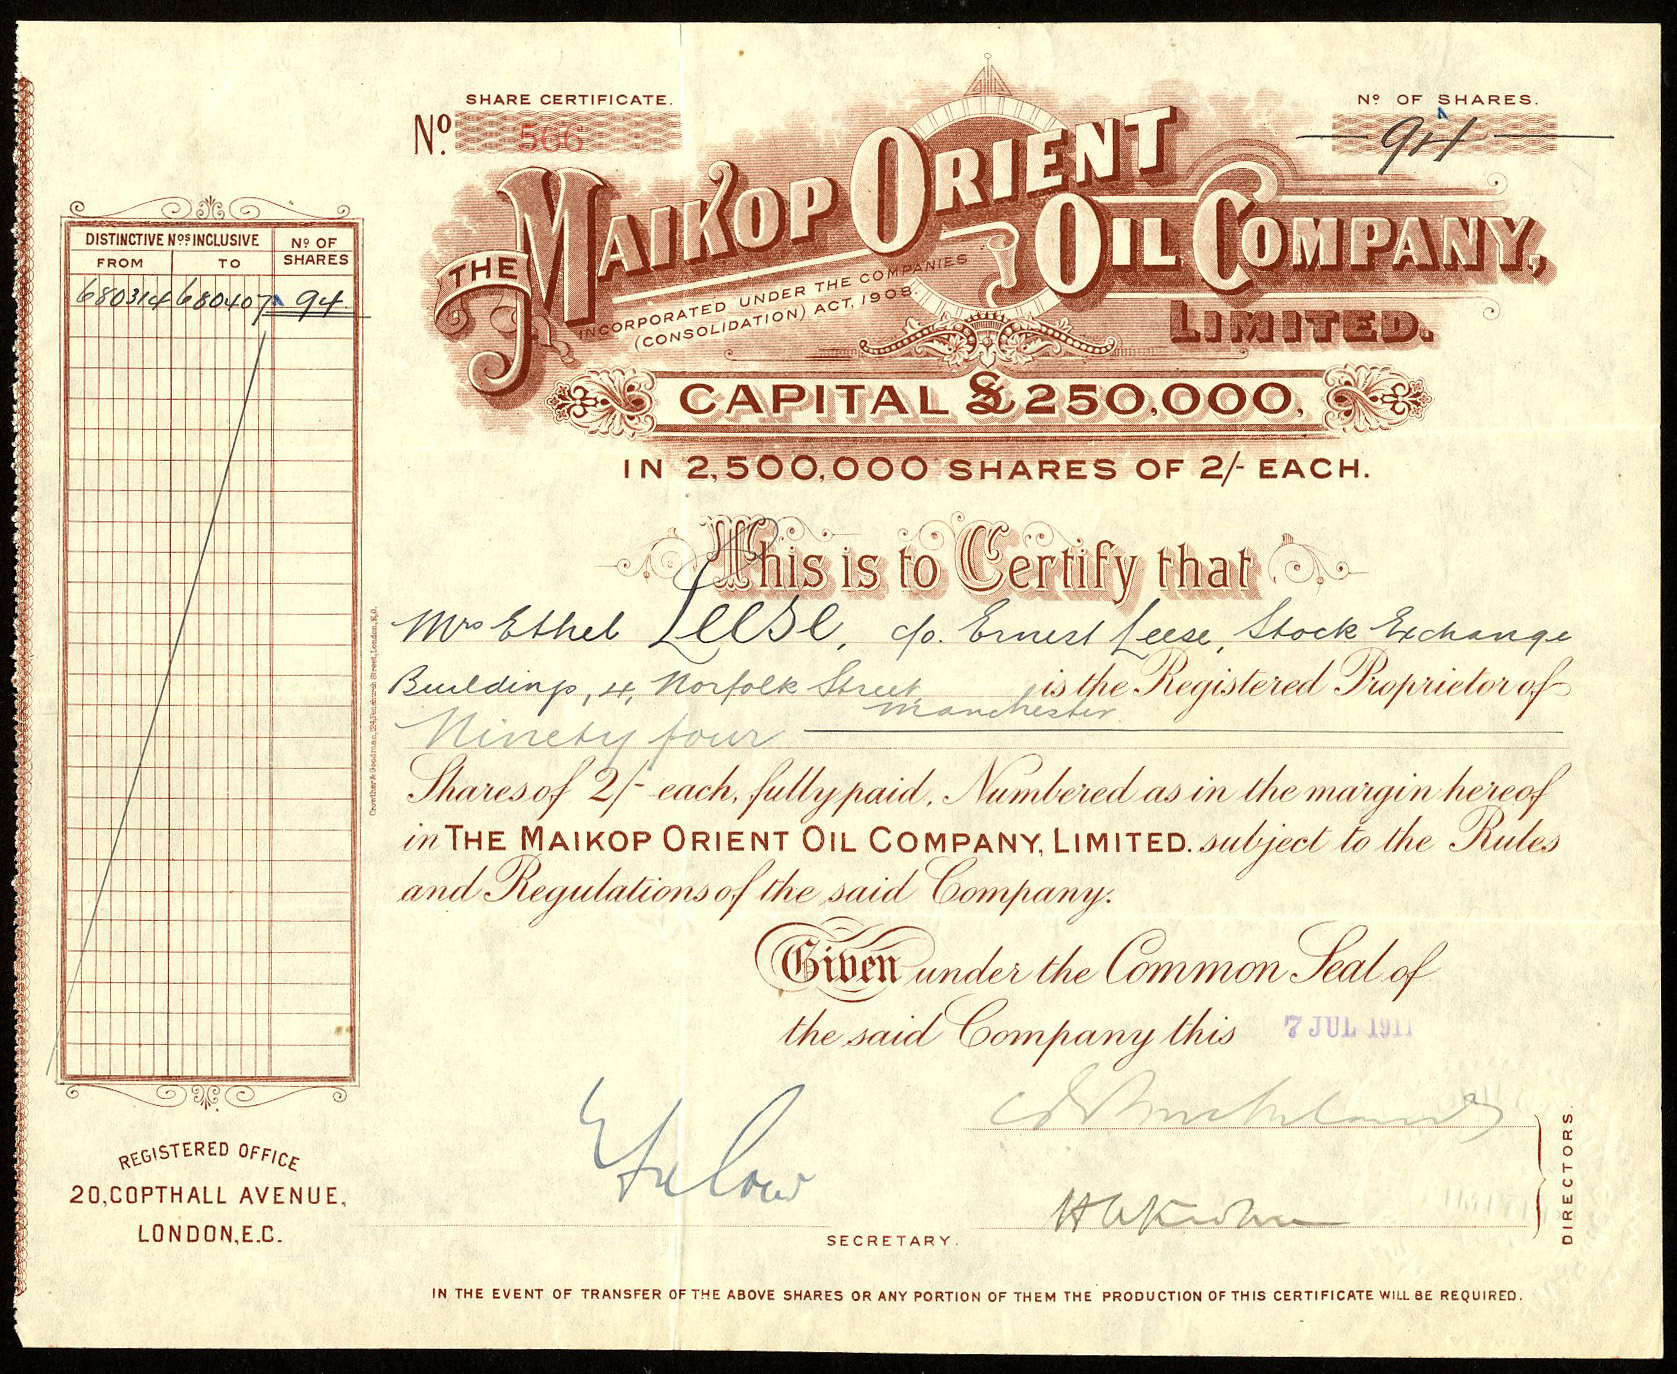 SHARE CERTIFICATE.
No. 566
No OF SHARES.
94
THE MAIKOP ORIENT OIL COMPANY, LIMITED.
INCORPORATED UNDER THE COMPANIES
(CONSOLIDATION) ACT, 1908.
CAPITAL £250,000,
IN 2,500,000 SHARES OF 2/- EACH.
DISTINCTIVE Nos INCLUSIVE
No OF SHARES
FROM TO
680314 680407 94
This is to Certify that
Mrs Ethel Leese, c/o. Ernest Leese, Stock Exchange
Buildings, 4, Norfolk Street, Manchester is the Registered Proprietor of
Ninety four
Shares of 2/- each, fully paid, Numbered as in the margin hereof
in THE MAIKOP ORIENT OIL COMPANY, LIMITED. subject to the Rules
and Regulations of the said Company.
Given under the Common Seal of
the said Company this 7 JUL 1911
DIRECTORS.
SECRETARY.
REGISTERED OFFICE
20, COPTHALL AVENUE,
LONDON, E.C.
IN THE EVENT OF TRANSFER OF THE ABOVE SHARES OR ANY PORTION OF THEM THE PRODUCTION OF THIS CERTIFICATE WILL BE REQUIRED.